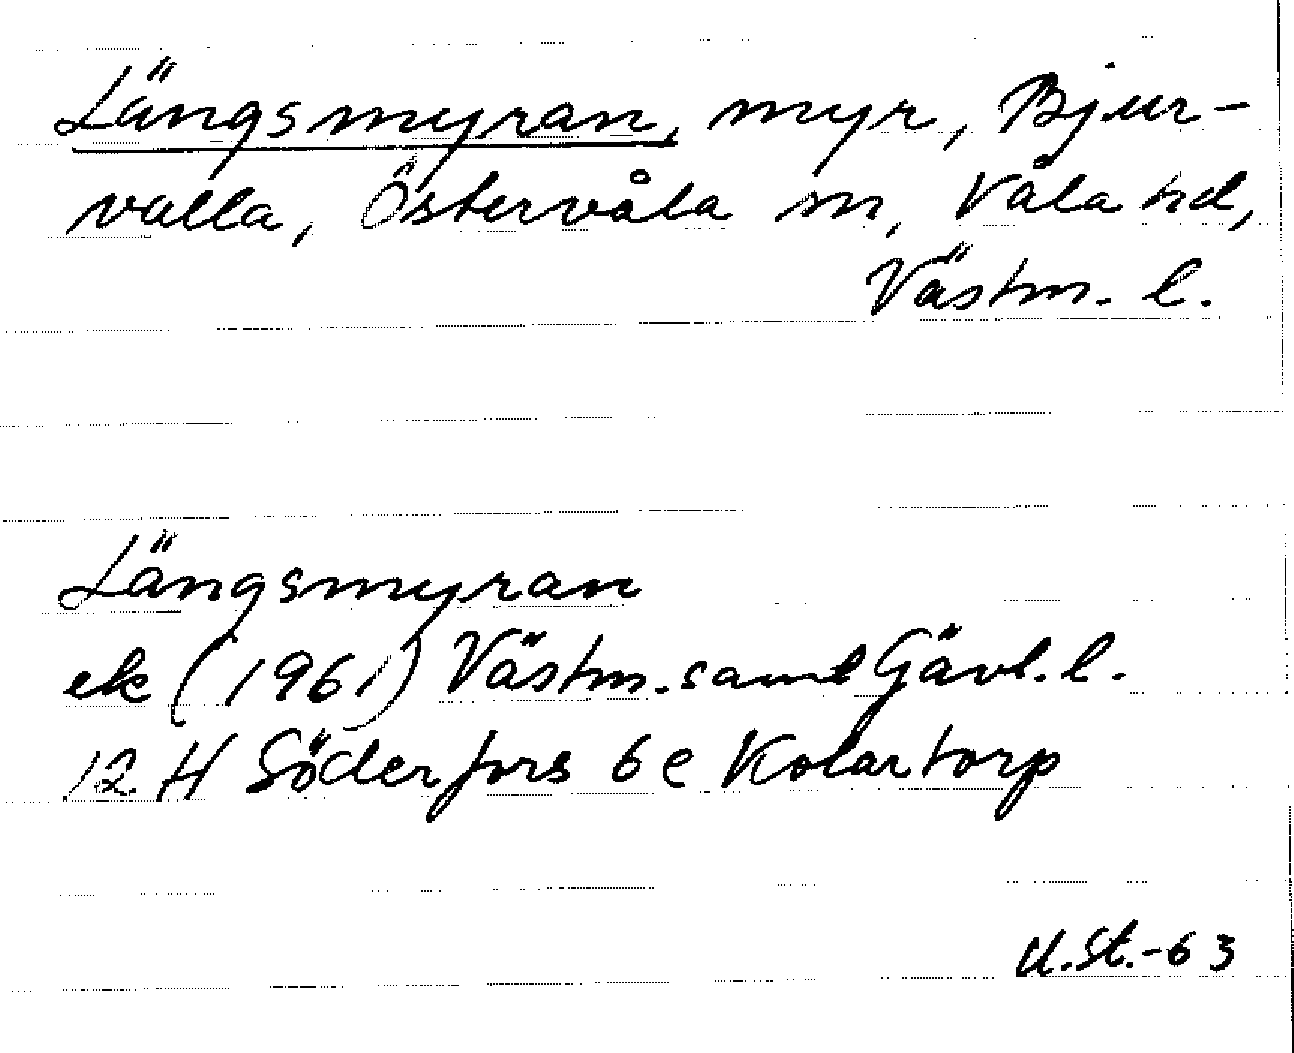 Längsmyran, myr, Bjur-
valla, Östervåla sn, Våla hd,
Västm. l.
Längsmyran
ek (1961) Västm. samt Gävl. l.
12 H Söderfors 6 e Kolartorp
U.St.-63